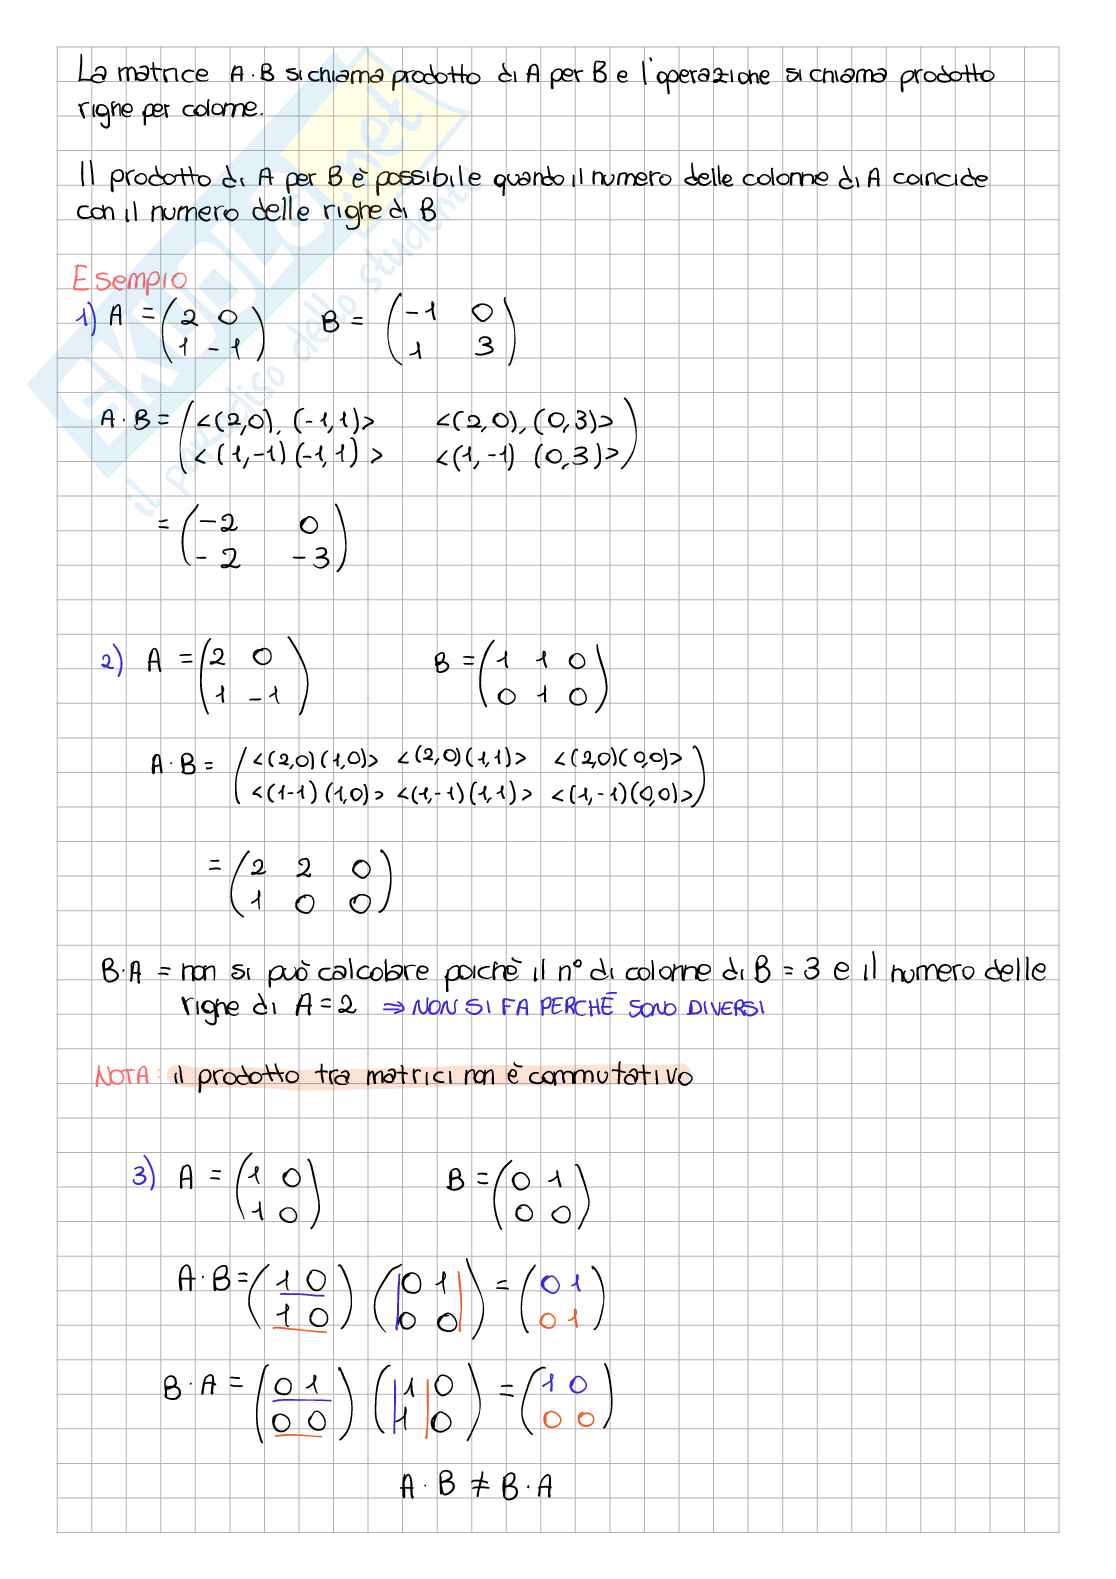 La matrice A·B si chiama prodotto di A per B e l'operazione si chiama prodotto
righe per colonne.
Il prodotto di A per B è possibile quando il numero delle colonne di A coincide
con il numero delle righe di B
Esempio
1) A = (2 0      B = (-1 0
1 -1)      1 3)
A·B = (<(2,0), (-1,1)>  <(2,0), (0,3)>
<(1,-1)(-1,1)>  <(1,-1) (0,3)>)
= (-2 0
-2 -3)
2) A = (2 0      B = (1 1 0
1 -1)      0 1 0)
A·B = (<(2,0)(1,0)> <(2,0)(1,1)> <(2,0)(0,0)>
<(1-1)(1,0)> <(1,-1)(1,1)> <(1,-1)(0,0)>)
= (2 2 0
1 0 0)
B·A = non si può calcolare poichè il n° di colonne di B = 3 e il numero delle
righe di A = 2 ⇒ NON SI FA PERCHÉ SONO DIVERSI
NOTA: il prodotto tra matrici non è commutativo
3) A = (1 0      B = (0 1
1 0)      0 0)
A·B = (1 0  (0 1  = (0 1
1 0)  0 0)  0 1)
B·A = (0 1  (1 0  = (1 0
0 0)  1 0)  0 0)
A·B ≠ B·A
SKUOLA.net
il paradiso dello studente